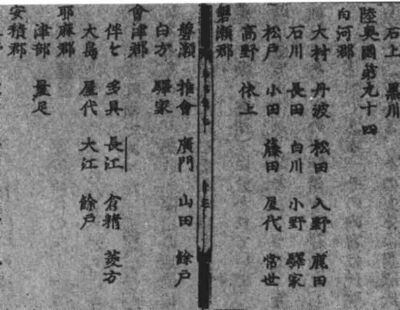 石上 黒川
陸奥國第九十四
白河郡
大村 丹波 松田 入野 鹿田
石川 長田 白川 小野 驛家
松戸 小田 藤田 屋代 常世
高野 依上
磐瀬郡
磐瀬 推會 廣門 山田 餘戸
白方 驛家
會津郡
伴七 多具 長江 倉精 菱方
大島 屋代 大江 餘戸
耶麻郡
津部 量足
安積郡